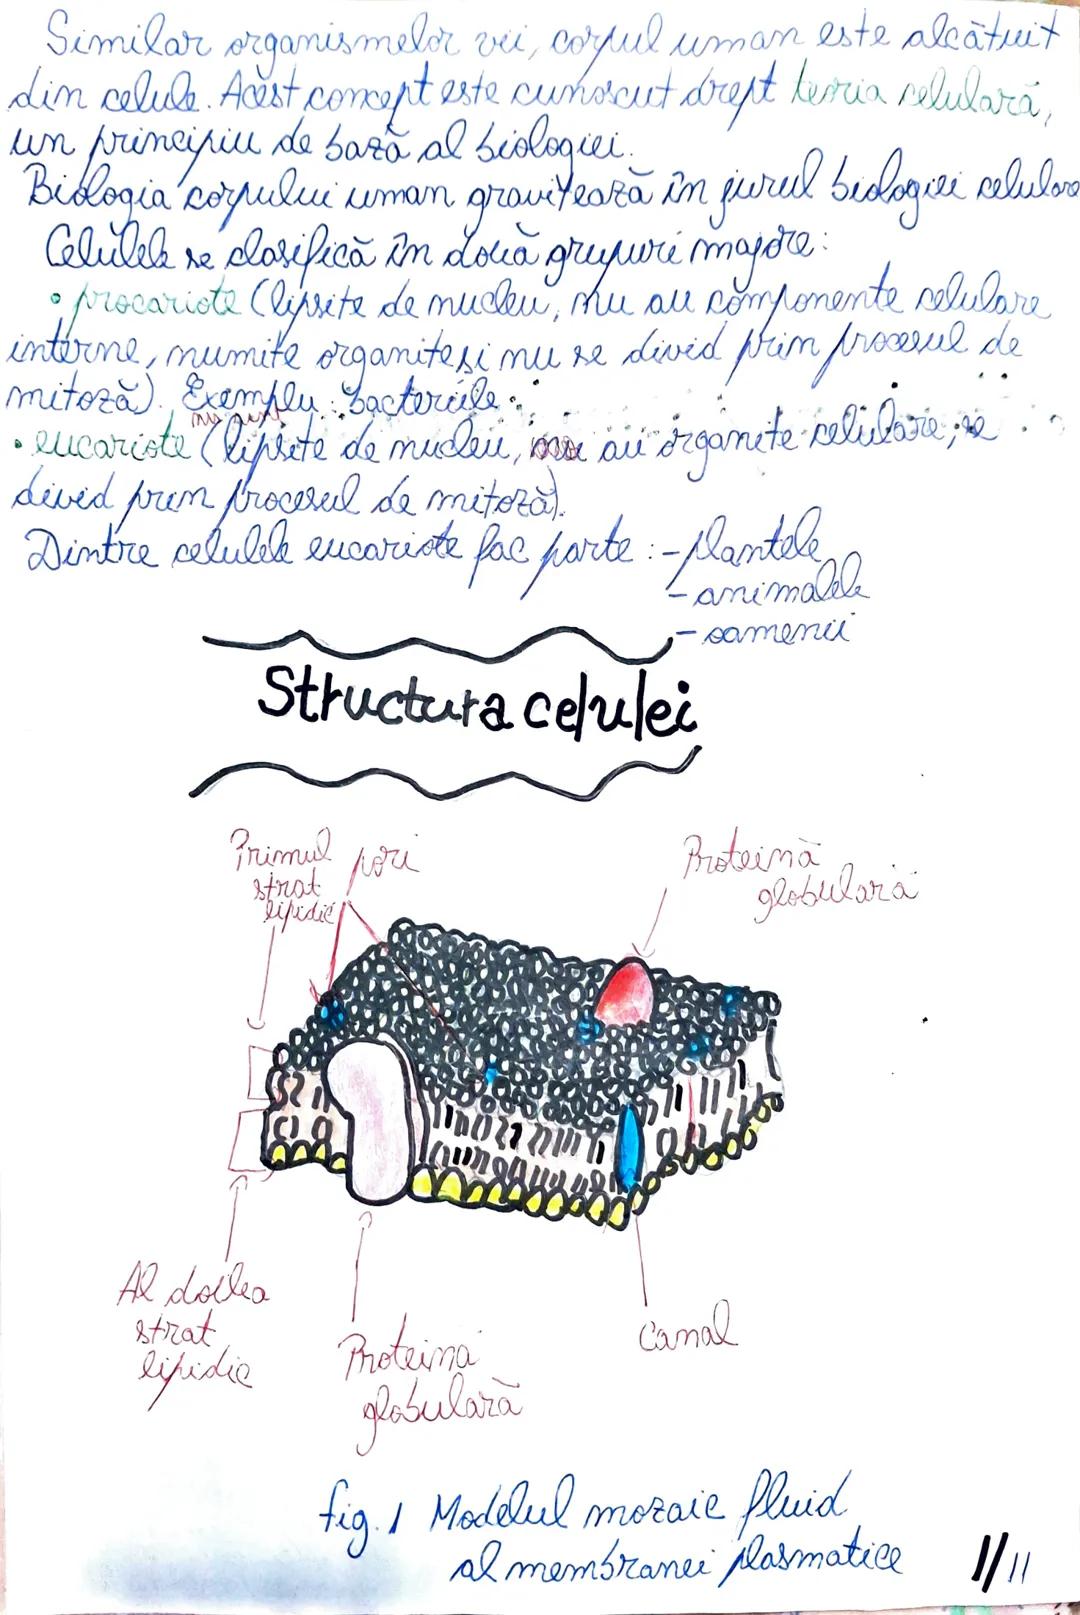 Similar organismelor vii, corpul uman este alcătuit
din celule. Acest concept este cunoscut drept teoria celulară,
un principiu de bază al biologiei.
Biologia corpului uman gravitează în jurul biologiei celulare
Celulele se clasifică în două grupuri majore:
• procariote (lipsite de nucleu, nu au componente celulare
interne, numite organite și nu se divid prin procesul de
mitoză). Exemplu: bacteriile.
nu sunt
• eucariote (lipsite de nucleu, au organite celulare, se
divid prin procesul de mitoză).
Dintre celulele eucariote fac parte: - plantele
- animalele
- oamenii
Structura celulei
Primul
strat
lipidic
pori
Proteină
globulară
Al doilea
strat
lipidic
Proteină
globulară
Canal
fig. 1 Modelul mozaic fluid
al membranei plasmatice
1/11